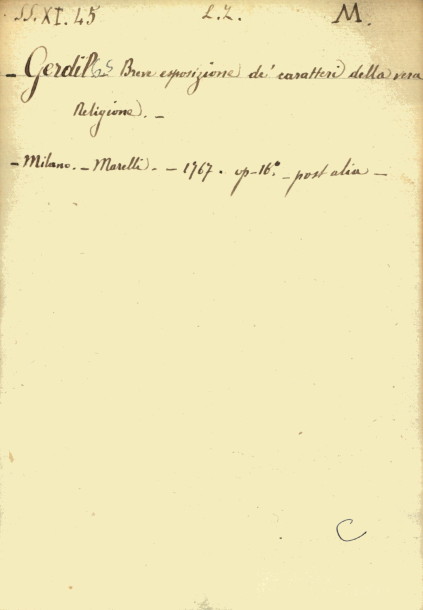 SS.XI.45 L.L. M.
- Gerdil Breve esposizione de' caratteri della vera
Religione. -
- Milano. - Marelli. - 1767. op-16.° - post alia -
C